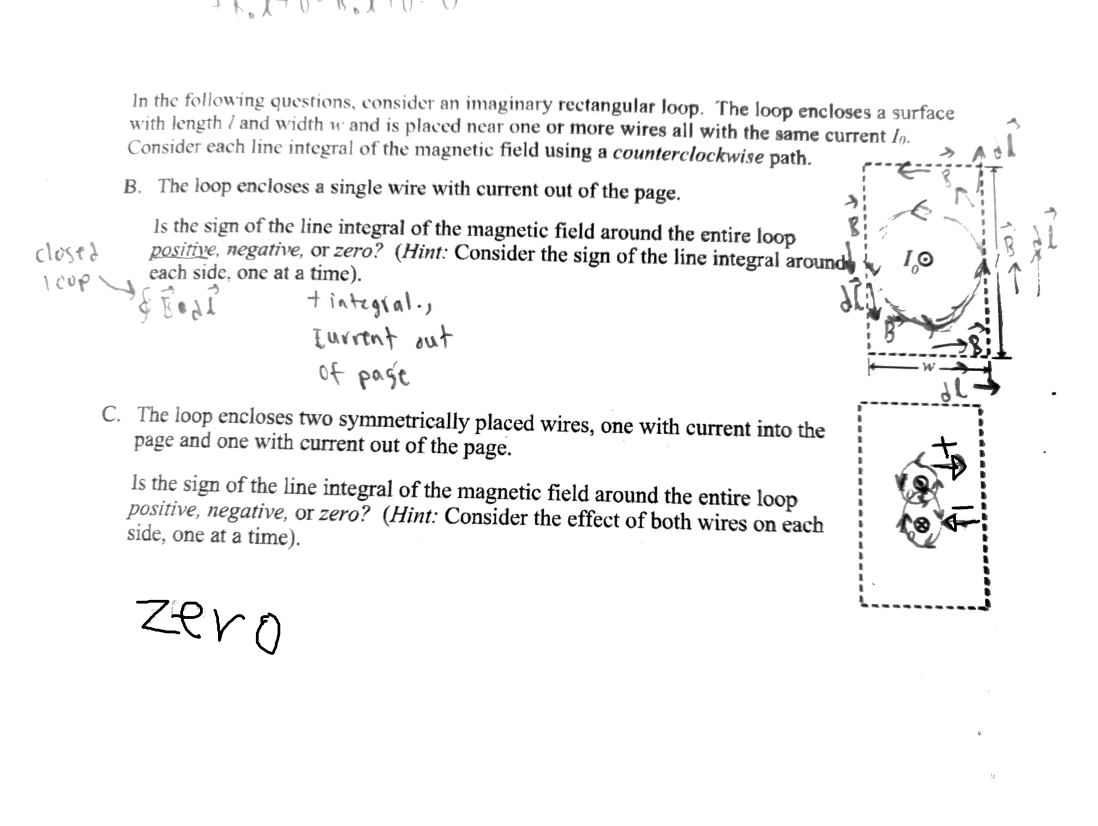 In the following questions, consider an imaginary rectangular loop. The loop encloses a surface
with length l and width w and is placed near one or more wires all with the same current I₀.
Consider each line integral of the magnetic field using a counterclockwise path.
B. The loop encloses a single wire with current out of the page.
Is the sign of the line integral of the magnetic field around the entire loop
positive, negative, or zero? (Hint: Consider the sign of the line integral around
each side, one at a time).
closed
loop
∮ B⃗ • dl⃗
+ integral.,
Current out
of page
dl⃗
B
B⃗
I₀
B⃗
dl⃗
dl⃗
B⃗
B⃗
w
dl
C. The loop encloses two symmetrically placed wires, one with current into the
page and one with current out of the page.
Is the sign of the line integral of the magnetic field around the entire loop
positive, negative, or zero? (Hint: Consider the effect of both wires on each
side, one at a time).
+
−
zero